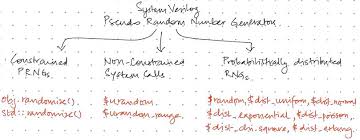 System Verilog
Pseudo Random Number Generator
Constrained
PRNGs
Non-Constrained
System Calls
Probabilistically distributed
RNGs.
obj.randomize().
std::randomize().
$urandom,
$urandom_range
$random, $dist_uniform, $dist_normal
$dist_exponential, $dist_poisson,
$dist_chi_square, $dist_erlang.